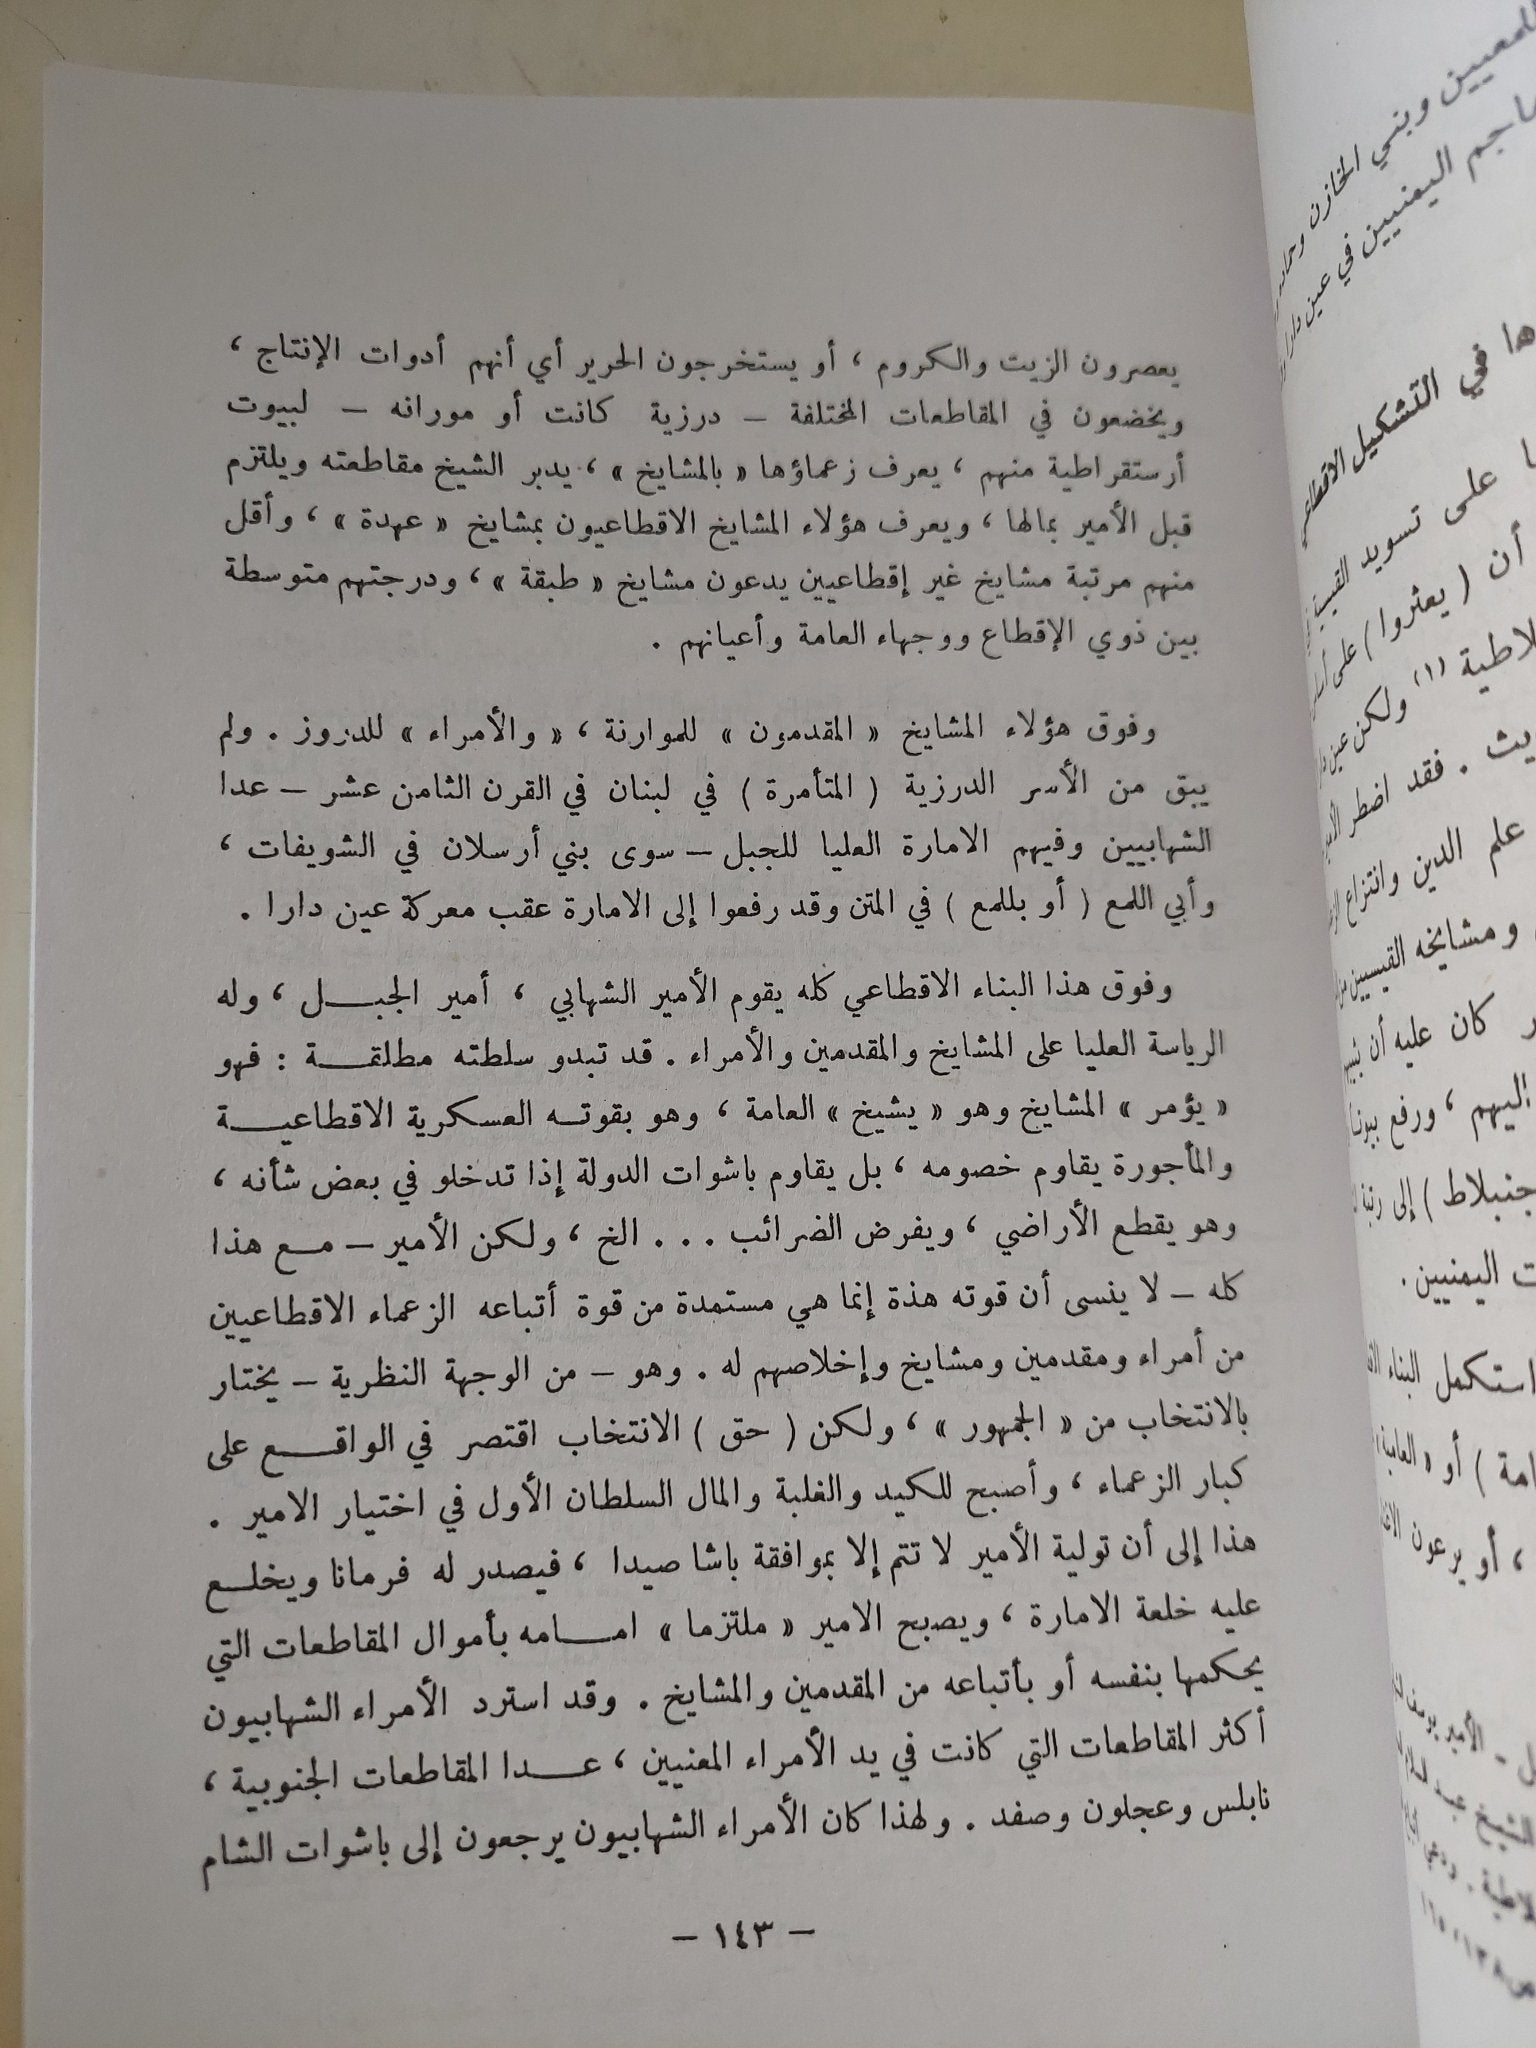 يعصرون الزيت والكروم ، أو يستخرجون الحرير أي أنهم أدوات الإنتاج ،
ويخضعون في المقاطعات المختلفة – درزية كانت أو مورانه – لبيوت
أرستقراطية منهم ، يعرف زعماؤها « بالمشايخ » ، يدبر الشيخ مقاطعته ويلتزم
قبل الأمير بمالها ، ويعرف هؤلاء المشايخ الاقطاعيون بمشايخ « عهدة » ، وأقل
منهم مرتبة مشايخ غير إقطاعيين يدعون مشايخ « طبقة » ، ودرجتهم متوسطة
بين ذوي الإقطاع ووجهاء العامة وأعيانهم .
وفوق هؤلاء المشايخ « المقدمون » للموارنة ، « والأمراء » للدروز . ولم
يبق من الأسر الدرزية ( المتأمرة ) في لبنان في القرن الثامن عشر – عدا
الشهابيين وفيهم الامارة العليا للجبل – سوى بني أرسلان في الشويفات ،
وأبي اللمع ( أو بللمع ) في المتن وقد رفعوا إلى الامارة عقب معركة عين دارا .
وفوق هذا البناء الاقطاعي كله يقوم الأمير الشهابي ، أمير الجبـــل ، وله
الرياسة العليا على المشايخ والمقدمين والأمراء . قد تبدو سلطته مطلقـــة : فهو
« يؤمر » المشايخ وهو « يشيخ » العامة ، وهو بقوتـه العسكرية الاقطاعيـــة
والمأجورة يقاوم خصومه ، بل يقاوم باشوات الدولة إذا تدخلو في بعض شأنه ،
وهو يقطع الأراضي ، ويفرض الضرائب . . . الخ ، ولكن الأمير – مـع هذا
كله – لا ينسى أن قوته هذة إنما هي مستمدة من قوة أتباعه الزعماء الاقطاعيين
من أمراء ومقدمين ومشايخ وإخلاصهم له . وهو – من الوجهة النظرية – يختار
بالانتخاب من « الجمهور » ، ولكن ( حق ) الانتخاب اقتصر في الواقـــع على
كبار الزعماء ، وأصبح للكيد والغلبة والمال السلطان الأول في اختيار الامير .
هذا إلى أن تولية الأمير لا تتم إلا بموافقة باشا صيدا ، فيصدر له فرمانا ويخلـــع
عليه خلعة الامارة ، ويصبح الامير « ملتزما » امـــامه بأموال المقاطعات التي
يحكمها بنفسه أو بأتباعه من المقدمين والمشايخ . وقد استرد الأمراء الشهابيون
أكثر المقاطعات التي كانت في يد الأمراء المعنيين ، عـــدا المقاطعات الجنوبية ،
نابلس وعجلون وصفد . ولهذا كان الأمراء الشهابيون يرجعون إلى باشوات الشام
– ١٤٣ –
وبني الخازن
اليمنيين في عين
في التشكيل
على تسويد
أن ( يعثروا ) على
(١) ولكن عين
. فقد اضطر
علم الدين وانتزاع
ومشايخه القيسيين
كان عليه أن
اليهم ، ورفع
جنبلاط ) إلى رتبة
اليمنيين .
استكمل البناء
) أو « العامية
، أو يرعون